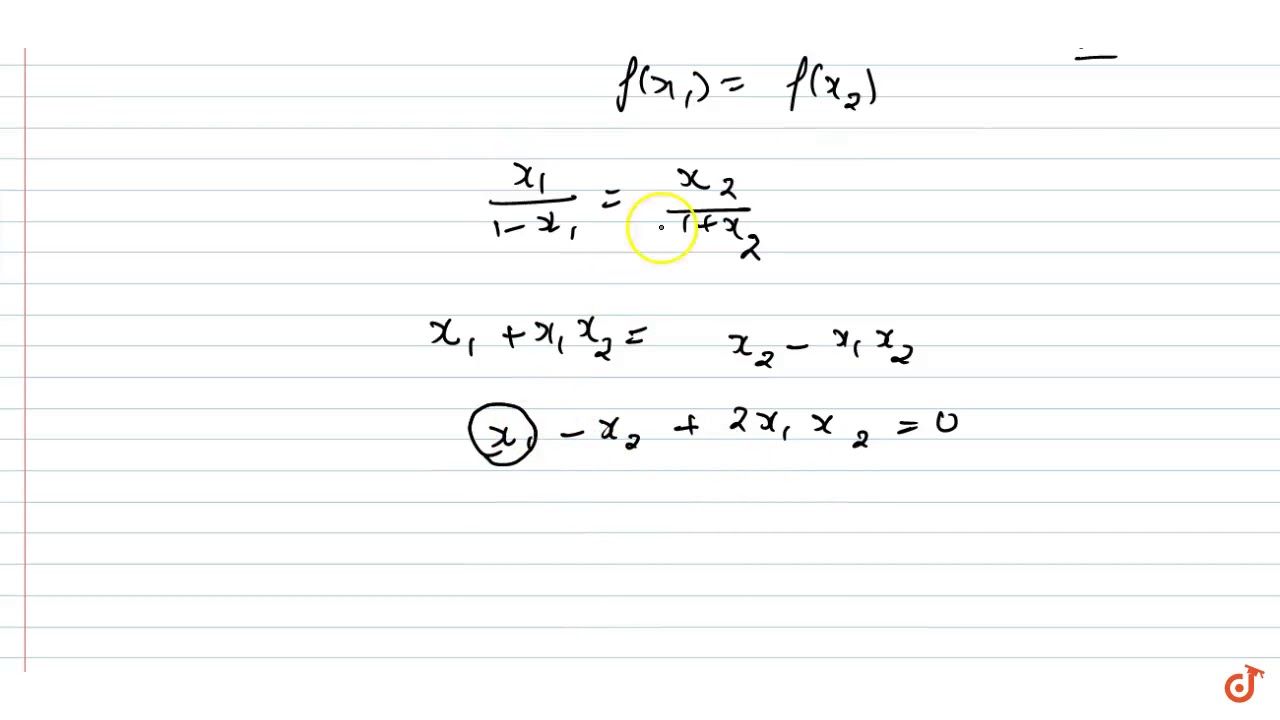 f(x₁) = f(x₂)
x₁/(1 - x₁) = x₂/(1 + x₂)
x₁ + x₁ x₂ = x₂ - x₁ x₂
x₁ - x₂ + 2x₁ x₂ = 0